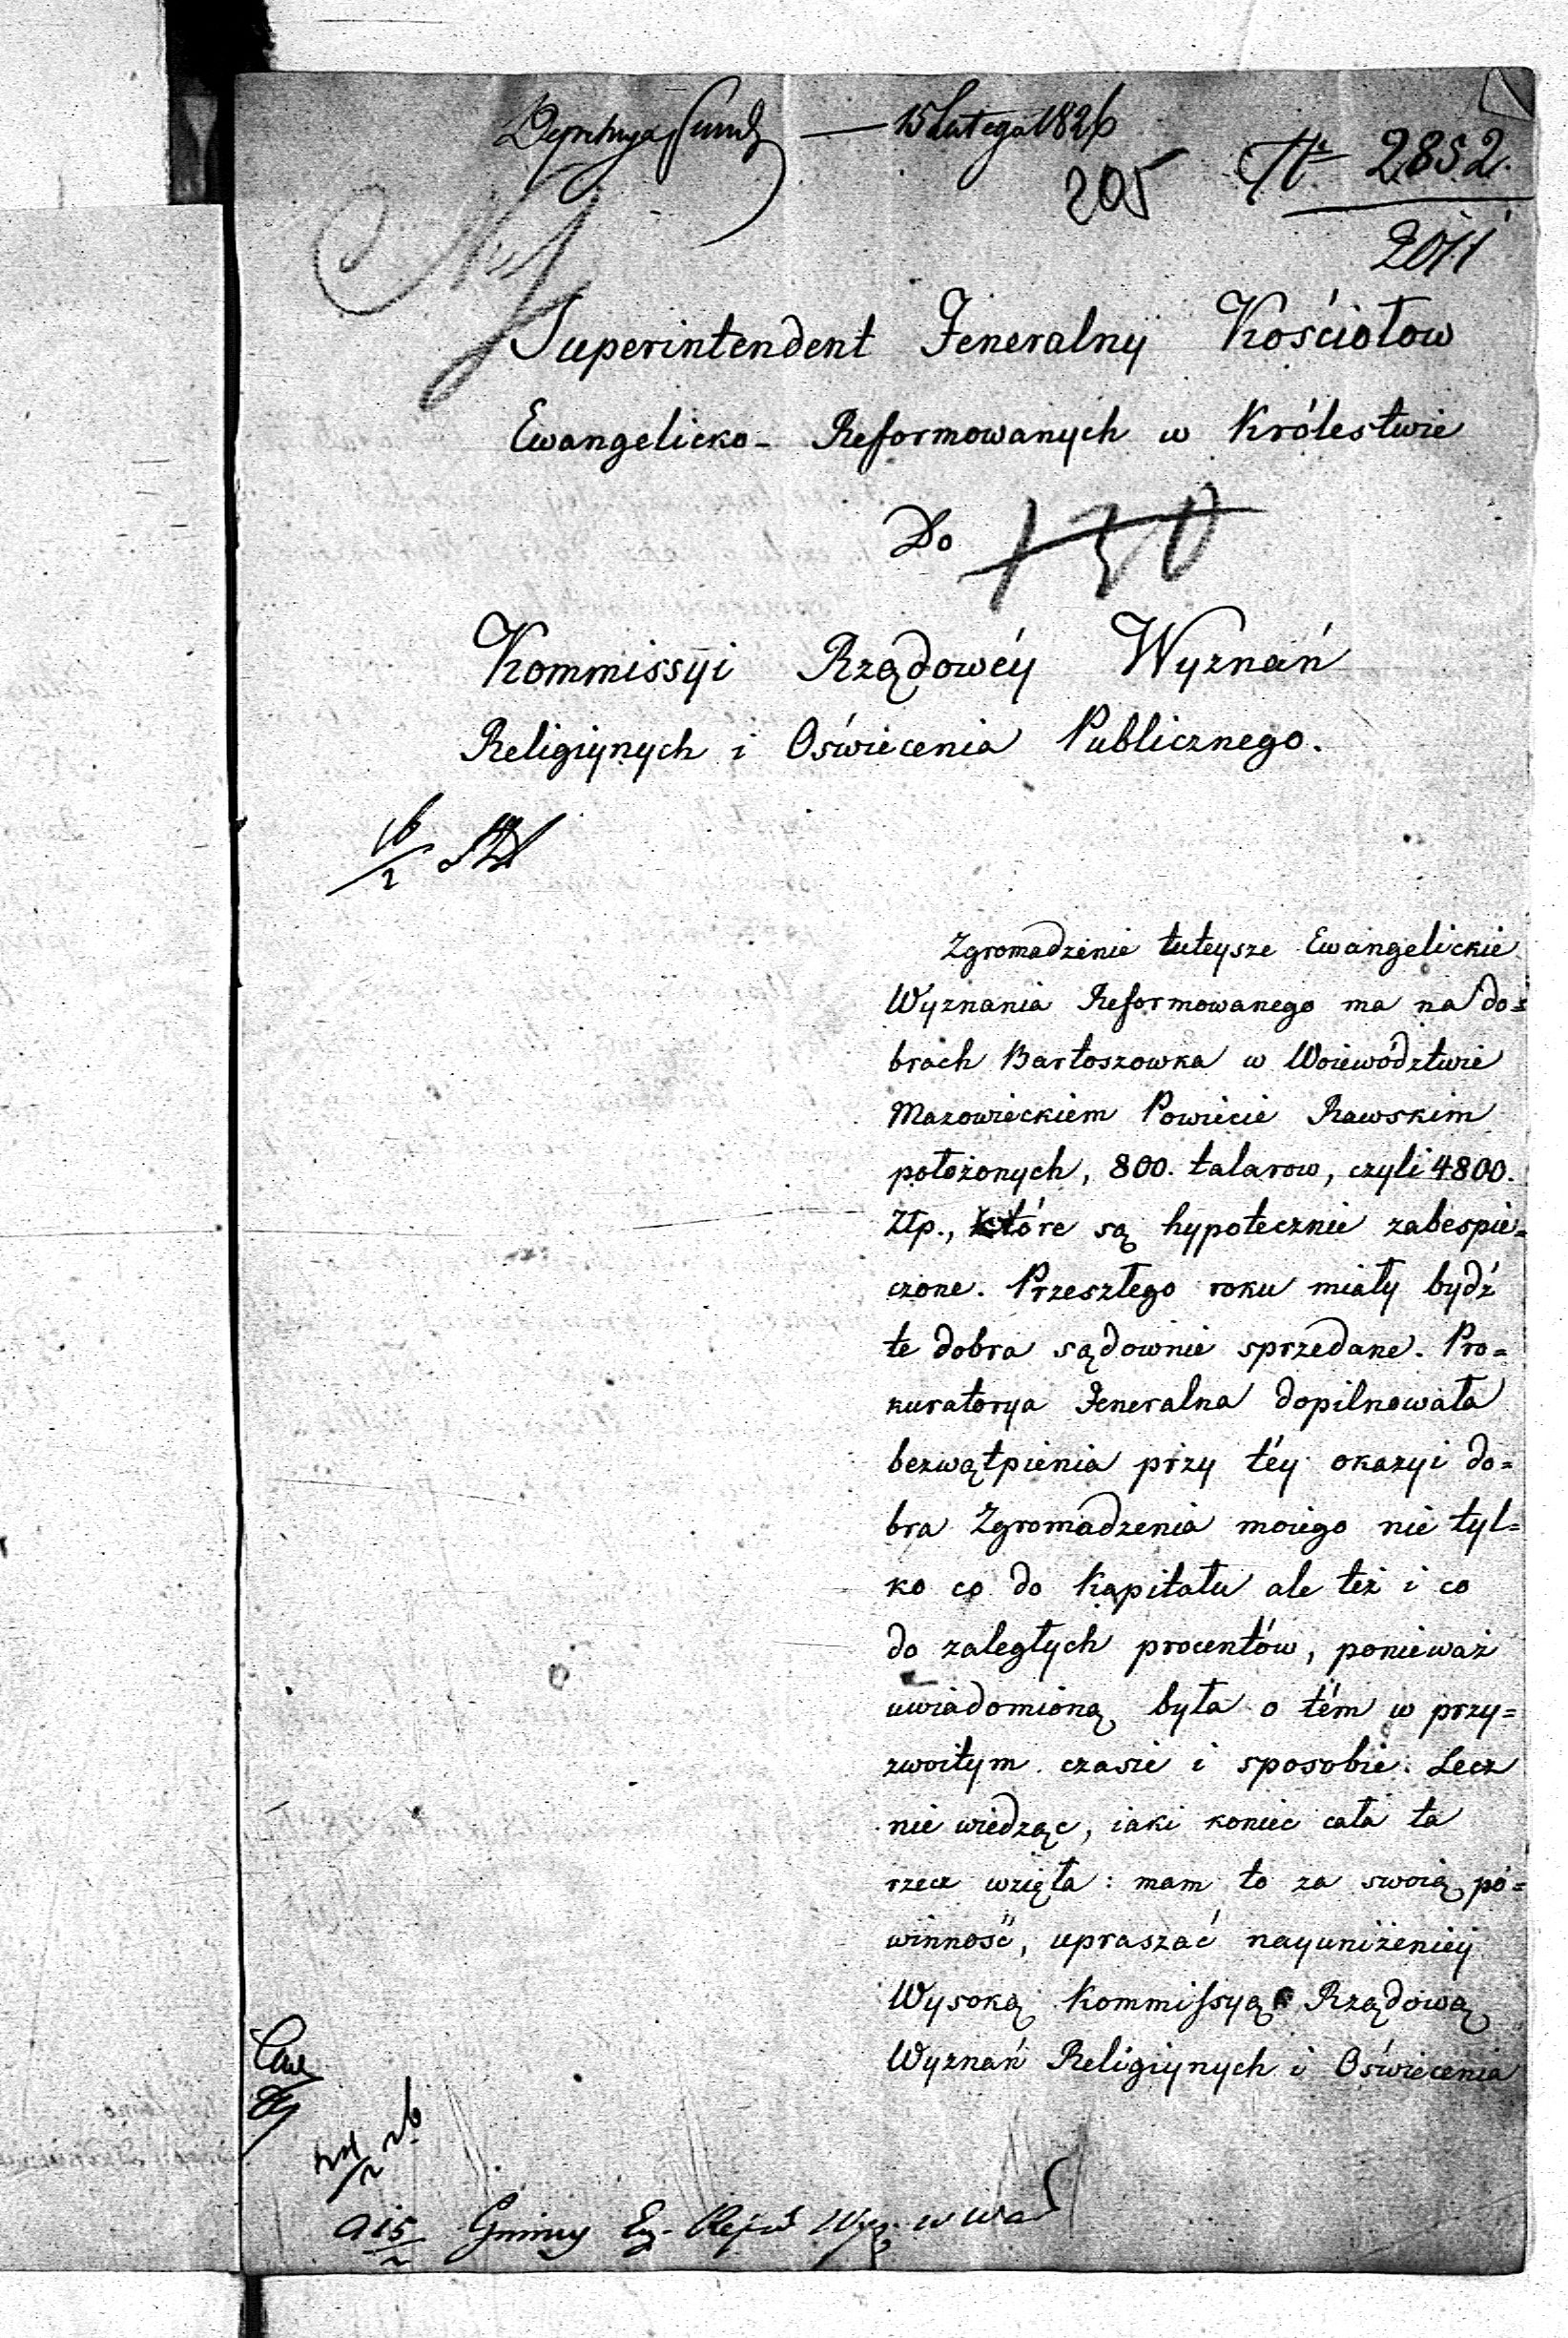 15 Lutego 1826
205
No 2852
2011
Superintendent Jeneralny Kościołow
Ewangelicko- Reformowanych w Królestwie
Do
130
Kommissyi Rządowéy Wyznań
Religiynych i Oświecenia Publicznego.
16/2
Zgromadzenie tuteysze Ewangelickie
Wyznania Reformowanego ma na do=
brach Bartoszowka w Woiewództwie
Mazowieckiem Powiecie Rawskim
położonych, 800. talarow, czyli 4800.
Złp., które są hypotecznie zabespie=
czone. Przeszłego roku miały bydź
te dobra sądownie sprzedane. Pro=
kuratorya Jeneralna dopilnowała
bezwątpienia przy téy okazyi do=
bra Zgromadzenia moiego nie tyl=
ko co do Kapitału ale też i co
do zaległych procentów, ponieważ
uwiadomioną była o tém w przy=
zwoitym czasie i sposobie. Lecz
nie wiedząc, iaki koniec cała ta
rzecz wzięła: mam to za swoią po=
winność, upraszać nayuniżeniey
Wysoką Kommissyą Rządową
Wyznań Religiynych i Oświecenia
Gminy Ew. Ref. w